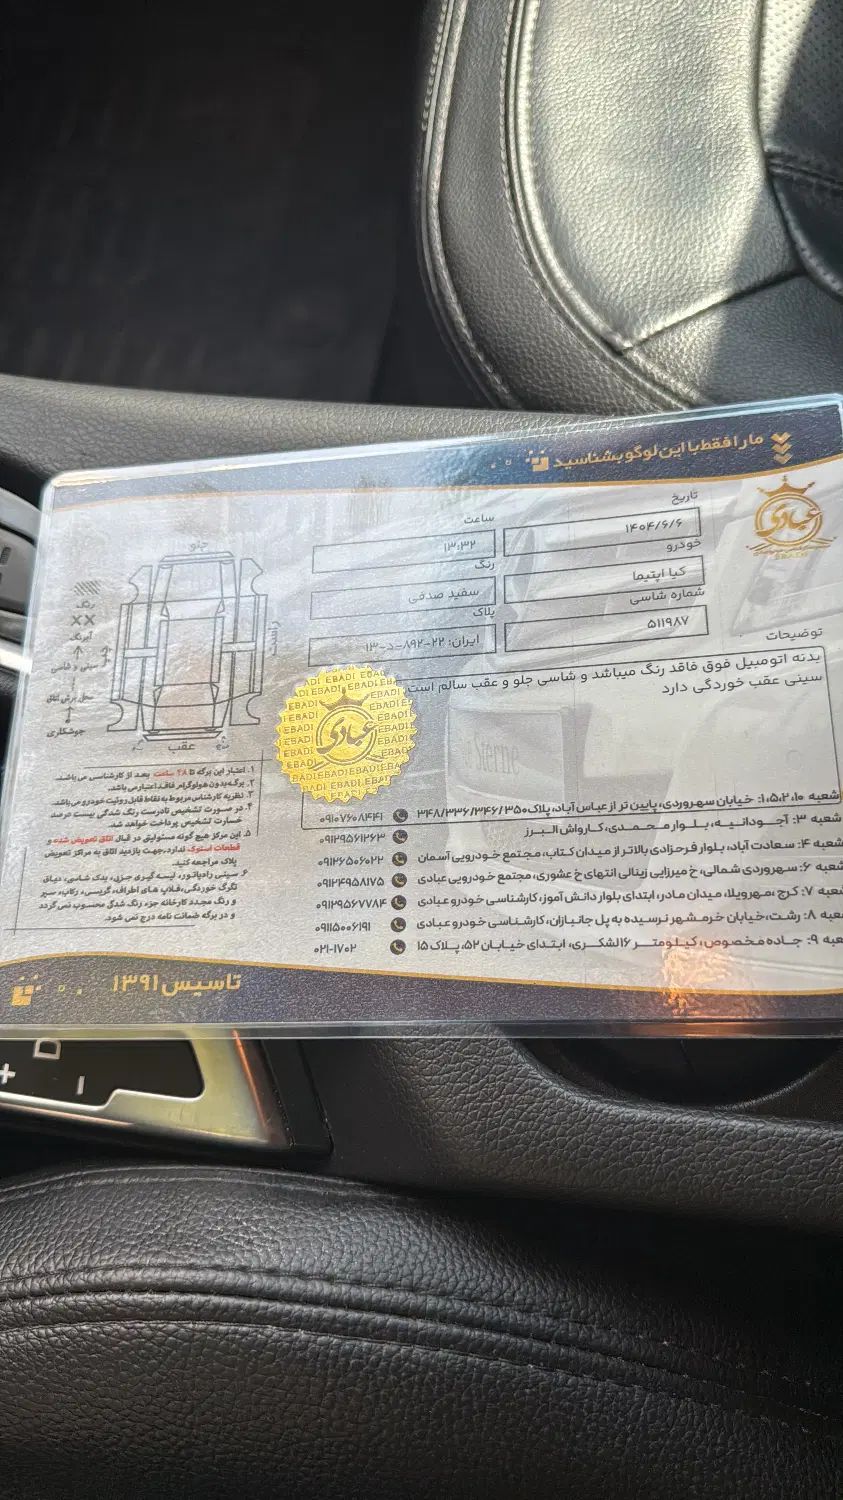 ما را فقط با این لوگو بشناسید
عبادی
تاریخ
۱۴۰۴/۶/۶
ساعت
۱۳:۳۲
خودرو
کیا اپتیما
رنگ
سفید صدفی
شماره شاسی
۵۱۱۹۸۷
پلاک
ایران: ۲۲-۸۹۲-د-۱۳
توضیحات
بدنه اتومبیل فوق فاقد رنگ میباشد و شاسی جلو و عقب سالم است
سینی عقب خوردگی دارد
جلو
راست
عقب
رنگ
XX
آبرنگ
سینی و شاسی
محل برش اتاق
جوشکاری
EBADI
عبادی
۱. اعتبار این برگه تا ۴۸ ساعت بعد از کارشناسی می‌باشد.
۲. برگه بدون هولوگرام فاقد اعتبار می‌باشد.
۳. نظریه کارشناس مربوط به نقاط قابل رویت خودرو می‌باشد.
۴. در صورت تشخیص نادرست رنگ شدگی بیست درصد
خسارت تشخیص پرداخت خواهد شد.
۵. این مرکز هیچ گونه مسئولیتی در قبال اتاق تعویض شده و
قطعات استوک ندارد، جهت بازدید اتاق به مراکز تعویض
پلاک مراجعه کنید.
۶. سینی رادیاتور، لیسه گیری جزی، یدک شاسی، دیاق
تگرگ خوردگی، قلاب های اطراف، گریسی، رکاب، سپر
و رنگ مجدد کارخانه جزء رنگ شدگی محسوب نمی گردد
و در برگه ضمانت نامه درج نمی شود.
شعبه ۱،۲،۵،۱۰: خیابان سهروردی، پایین تر از عباس آباد، پلاک ۳۴۸/۳۳۶/۳۴۶/۳۵۰ ۰۹۱۰۷۶۰۸۴۴۱
شعبه ۳: آجودانیه، بلوار محمدی، کارواش البرز ۰۹۱۲۹۵۶۱۲۶۳
شعبه ۴: سعادت آباد، بلوار فرحزادی بالاتر از میدان کتاب، مجتمع خودرویی آسمان ۰۹۱۲۶۵۰۶۰۲۲
شعبه ۶: سهروردی شمالی، خ میرزایی زینالی انتهای خ عشوری، مجتمع خودرویی عبادی ۰۹۱۲۴۹۵۸۱۷۵
شعبه ۷: کرج، مهرویلا، میدان مادر، ابتدای بلوار دانش آموز، کارشناسی خودرو عبادی ۰۹۱۲۹۵۶۷۷۸۴
عبه ۸: رشت، خیابان خرمشهر نرسیده به پل جانبازان، کارشناسی خودرو عبادی ۰۹۱۱۵۰۰۶۱۹۱
عبه ۹: جاده مخصوص، کیلومتر ۱۶ لشکری، ابتدای خیابان ۵۲، پلاک ۱۵ ۰۲۱-۱۷۰۲
تاسیس ۱۳۹۱
D
+
−